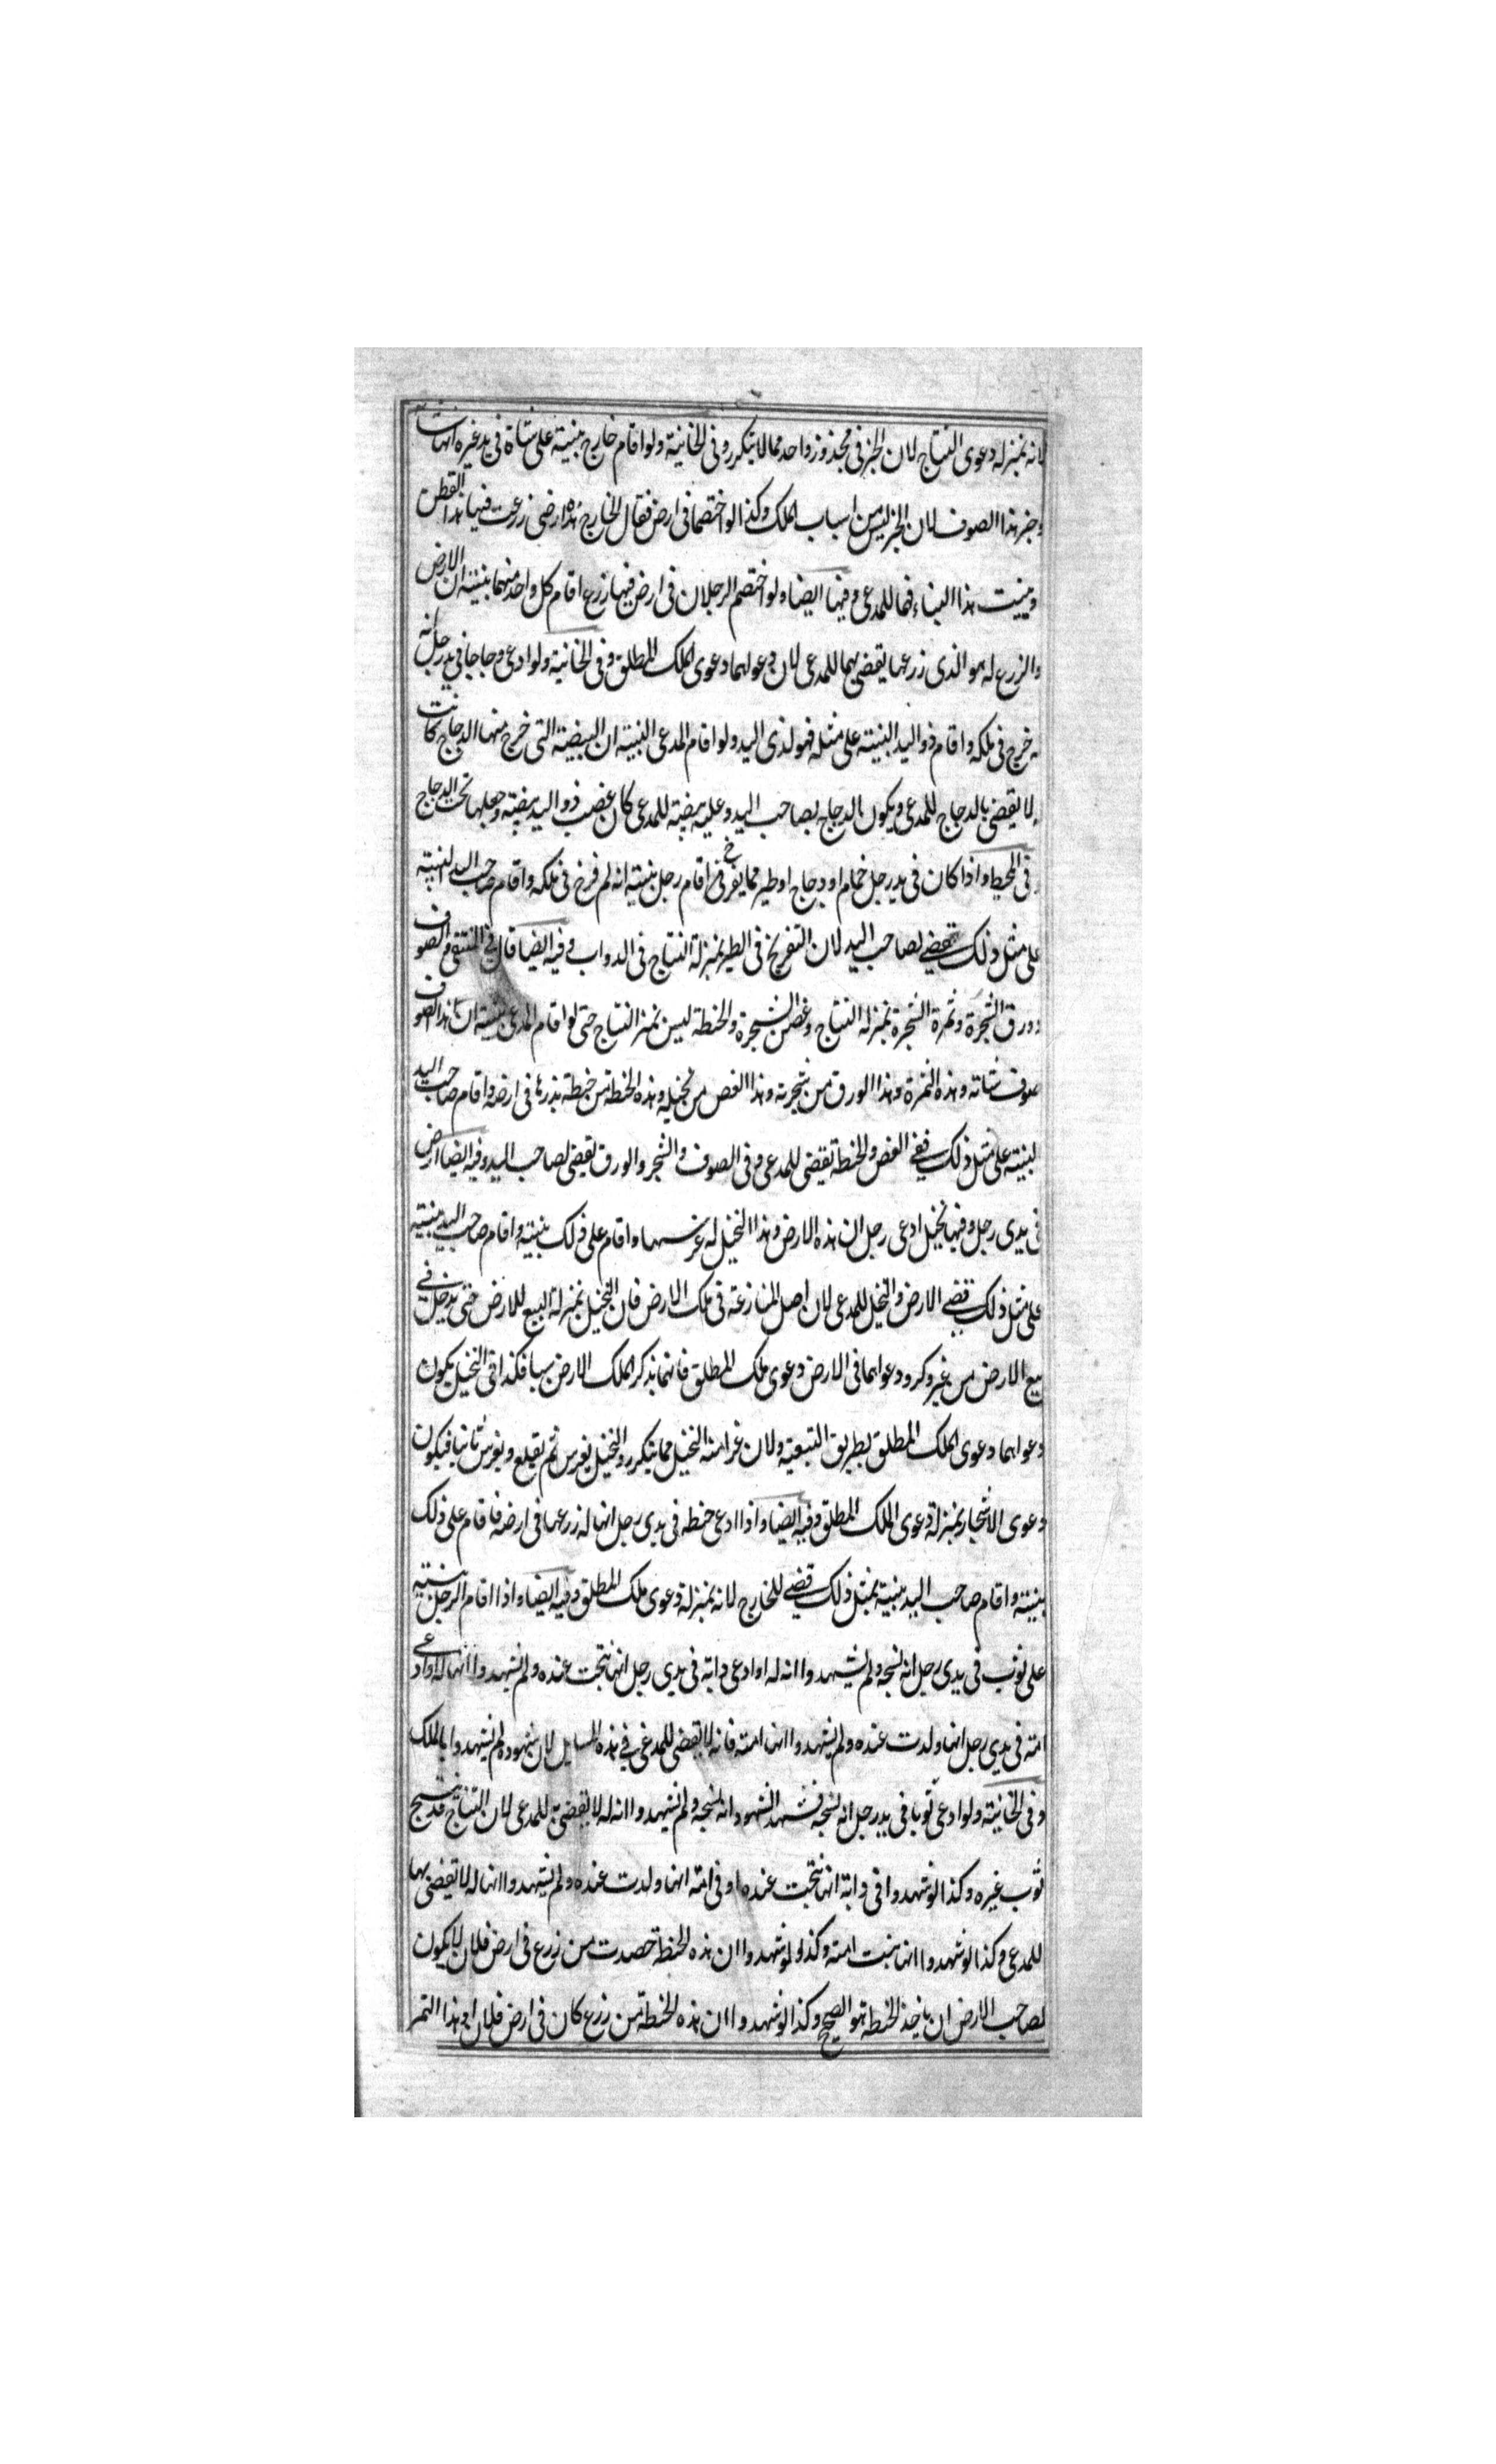 لانه بمنزله دعوى النتاج لان الجز فى مجذوز واحد مما لا يتكرر وفى الخانية ولو اقام خارج بنية على شاة فى يد غيره انها شاته
وجز هذا الصوف لان الجز ليس من اسباب الملك وكذا لو اختصما فى ارض فقال الخارج هذه ارضى زرعت فيها هذا القطن
وبنيت هذا البناء فهما للمدعى وفيها ايضا ولو اختصم الرجلان فى ارض فيها زرع اقام كل واحد منهما بنية ان الارض
والزرع له هو الذى زرعها يقضى بهما للمدعى لان دعولهما دعوى الملك المطلق وفى الخانية ولو ادعى دجاجا فى يد رجل انه
له خرج فى ملكه واقام ذو اليد البنية على مثله فهو لذى اليد ولو اقام المدعى البنية ان البيضة التى خرج منها الدجاج كانت
له لا يقضى بالدجاج للمدعى ويكون الدجاج لصاحب اليد وعليه بيضة للمدعى كان غصب ذو اليد بيضة وجعلها تحت الدجاج
وفى المحيط واذا كان فى يد رجل حمام او دجاج او طير مما يفرخ اقام رجل بنية انه لم فرخ فى ملكه واقام صاحب اليد البنية
على مثل ذلك يقضى لصاحب اليد لان التفريخ فى الطير بمنزلة النتاج فى الدواب وفيه ايضا قال فى المنتقى والصوف
وورق الشجرة وثمرة الشجرة بمنزله النتاج وغصن الشجرة والحنطة ليس بمنزله النتاج حتى لو اقام المدعى بنية ان هذا الصوف
صوف شاته وهذه الثمرة وهذا الورق من شجرته وهذا الغصن من نخيله وهذه الحنطة من حنطة بذرها فى ارضه واقام صاحب اليد
البنية على مثل ذلك ففى الغصن والحنطة يقضى للمدعى وفى الصوف والشجر والورق يقضى لصاحب اليد وفيه ايضا ارض
فى يدى رجل وفيها نخيل ادعى رجل ان هذه الارض وهذا النخيل له غرسها واقام على ذلك بنية واقام صاحب اليد بنية
على مثل ذلك قضى الارض والنخل للمدعى لان اصل المنازعة فى ملك الارض فان النخيل بمنزلة البيع للارض حتى يدخل فى
بيع الارض من غير ذكر ودعواهما فى الارض دعوى ملك المطلق فانهما يذكر الملك الارض سببا فكذا فى النخيل يكون
دعواهما دعوى الملك المطلق بطريق التبعية ولان غراسة النخيل مما يتكرر والنخيل يغرس ثم يقلع ويغرس ثانيا فيكون
دعوى الاشجار بمنزلة دعوى الملك المطلق وفيه ايضا واذا ادعى حنطه فى يدى رجل انها له زرعها فى ارضه فاقام على ذلك
بنية واقام صاحب اليد بنية بمثل ذلك قضى للخارج لانه بمنزلة دعوى ملك المطلق وفيه ايضا واذا اقام الرجل بنية
على ثوب فى يدى رجل انه نسجه ولم يشهدوا انه له او ادعى دابة فى يدى رجل انها نتجت عنده ولم يشهدوا انها له او ادعى
امة فى يدى رجل انها ولدت عنده ولم يشهدوا انها امته فانه لا يقضى للمدعى فى هذه المسايل لان شهوده لم يشهدوا بالملك
وفى الخانية ولو ادعى ثوبا فى يد رجل انه نسجه فشهد الشهود انه نسجه ولم يشهدوا انه له لا يقضى للمدعى لان النتاج قد ينسج
ثوب غيره وكذا لو شهدوا فى دابة انها نتجت عنده او فى امة انها ولدت عنده ولم يشهدوا انها له لا يقضى بها
للمدعى وكذا لو شهدوا انها بنت امته وكذا لو شهدوا ان هذه الحنطة حصدت من زرع فى ارض فلان لا يكون
لصاحب الارض ان ياخذ الحنطة هو الصحيح وكذا لو شهدوا ان هذه الحنطة من زرع كان فى ارض فلان او هذا التمر